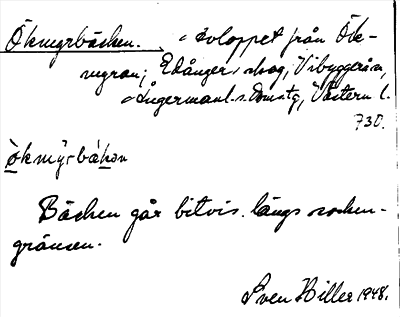 Ökmyrbäcken. Avloppet från Ök-
myran; Edånger, skog, Vibyggerå sn,
Ångermanl. s. Domstg, Västern. l.
730.
ökmy̆rbäkən
Bäcken går bitvis längs socken-
gränsen.
Sven Hiller 1948.